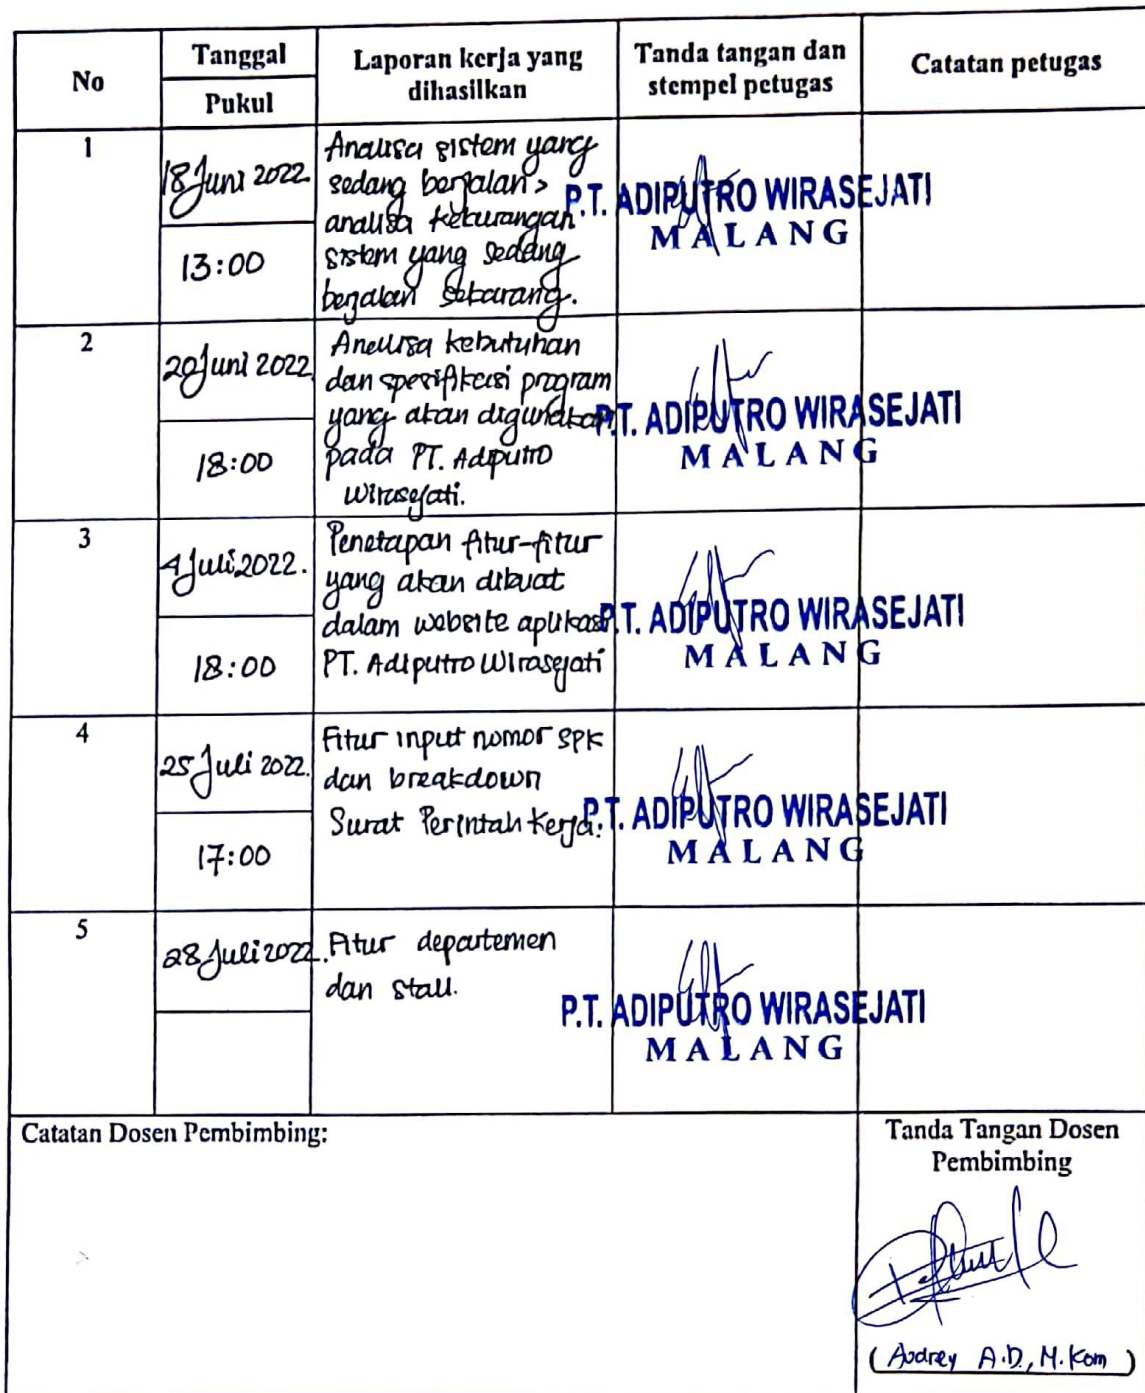 No
Tanggal
Pukul
Laporan kerja yang
dihasilkan
Tanda tangan dan
stempel petugas
Catatan petugas
1
18 Juni 2022
13:00
Analisa sistem yang
sedang berjalan >
analisa kekurangan
sistem yang sedang
berjalan sekarang.
P.T. ADIPUTRO WIRASEJATI
MALANG
2
20 Juni 2022
18:00
Analisa kebutuhan
dan spesifikasi program
yang akan digunakan
pada PT. Adiputro
Wirasejati.
P.T. ADIPUTRO WIRASEJATI
MALANG
3
4 Juli 2022.
18:00
Penetapan fitur-fitur
yang akan dibuat
dalam website aplikasi
PT. Adiputro Wirasejati
P.T. ADIPUTRO WIRASEJATI
MALANG
4
25 Juli 2022.
17:00
Fitur input nomor SPK
dan breakdown
Surat Perintah Kerja.
P.T. ADIPUTRO WIRASEJATI
MALANG
5
28 Juli 2022.
Fitur departemen
dan stall.
P.T. ADIPUTRO WIRASEJATI
MALANG
Catatan Dosen Pembimbing:
Tanda Tangan Dosen
Pembimbing
(Audrey A.D., M.Kom)